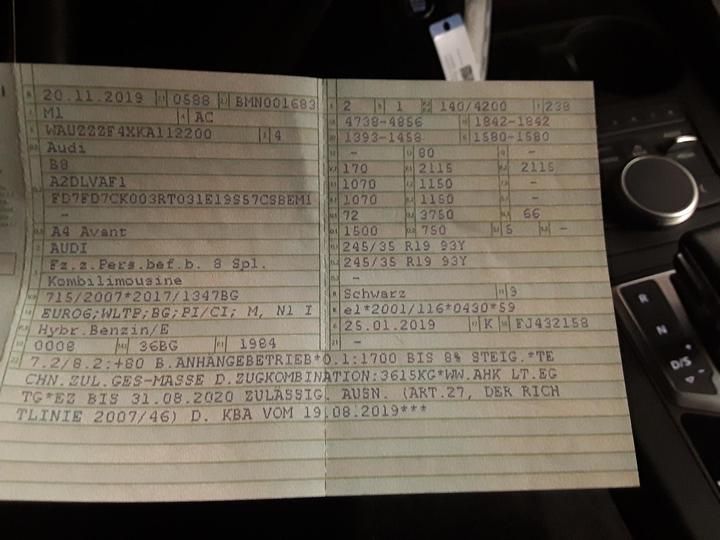 20.11.2019 0588 BMN001683
M1 AC
WAUZZZF4XKA112200 4
Audi
B8
A2DLVAF1
FD7FD7CK003RT031E19S57CSBEM1
-
A4 Avant
AUDI
Fz.z.Pers.bef.b. 8 Spl.
Kombilimousine
715/2007*2017/1347BG
EURO6;WLTP;BG;PI/CI; M, N1 I
Hybr.Benzin/E
0008 36BG 1984
2 1 140/4200 238
4738-4856 1842-1842
1393-1458 1580-1580
- 80 -
170 2115 2115
1070 1150 -
1070 1150 -
72 3750 66
1500 750 5 -
245/35 R19 93Y
245/35 R19 93Y
-
Schwarz 9
e1*2001/116*0430*59
25.01.2019 K FJ432158
-
7.2/8.2:+80 B.ANHÄNGEBETRIEB*O.1:1700 BIS 8% STEIG.*TE
CHN.ZUL.GES-MASSE D.ZUGKOMBINATION:3615KG*WW.AHK LT.EG
TG*EZ BIS 31.08.2020 ZULÄSSIG, AUSN. (ART.27, DER RICH
TLINIE 2007/46) D. KBA VOM 19.08.2019***
R
N
D/S